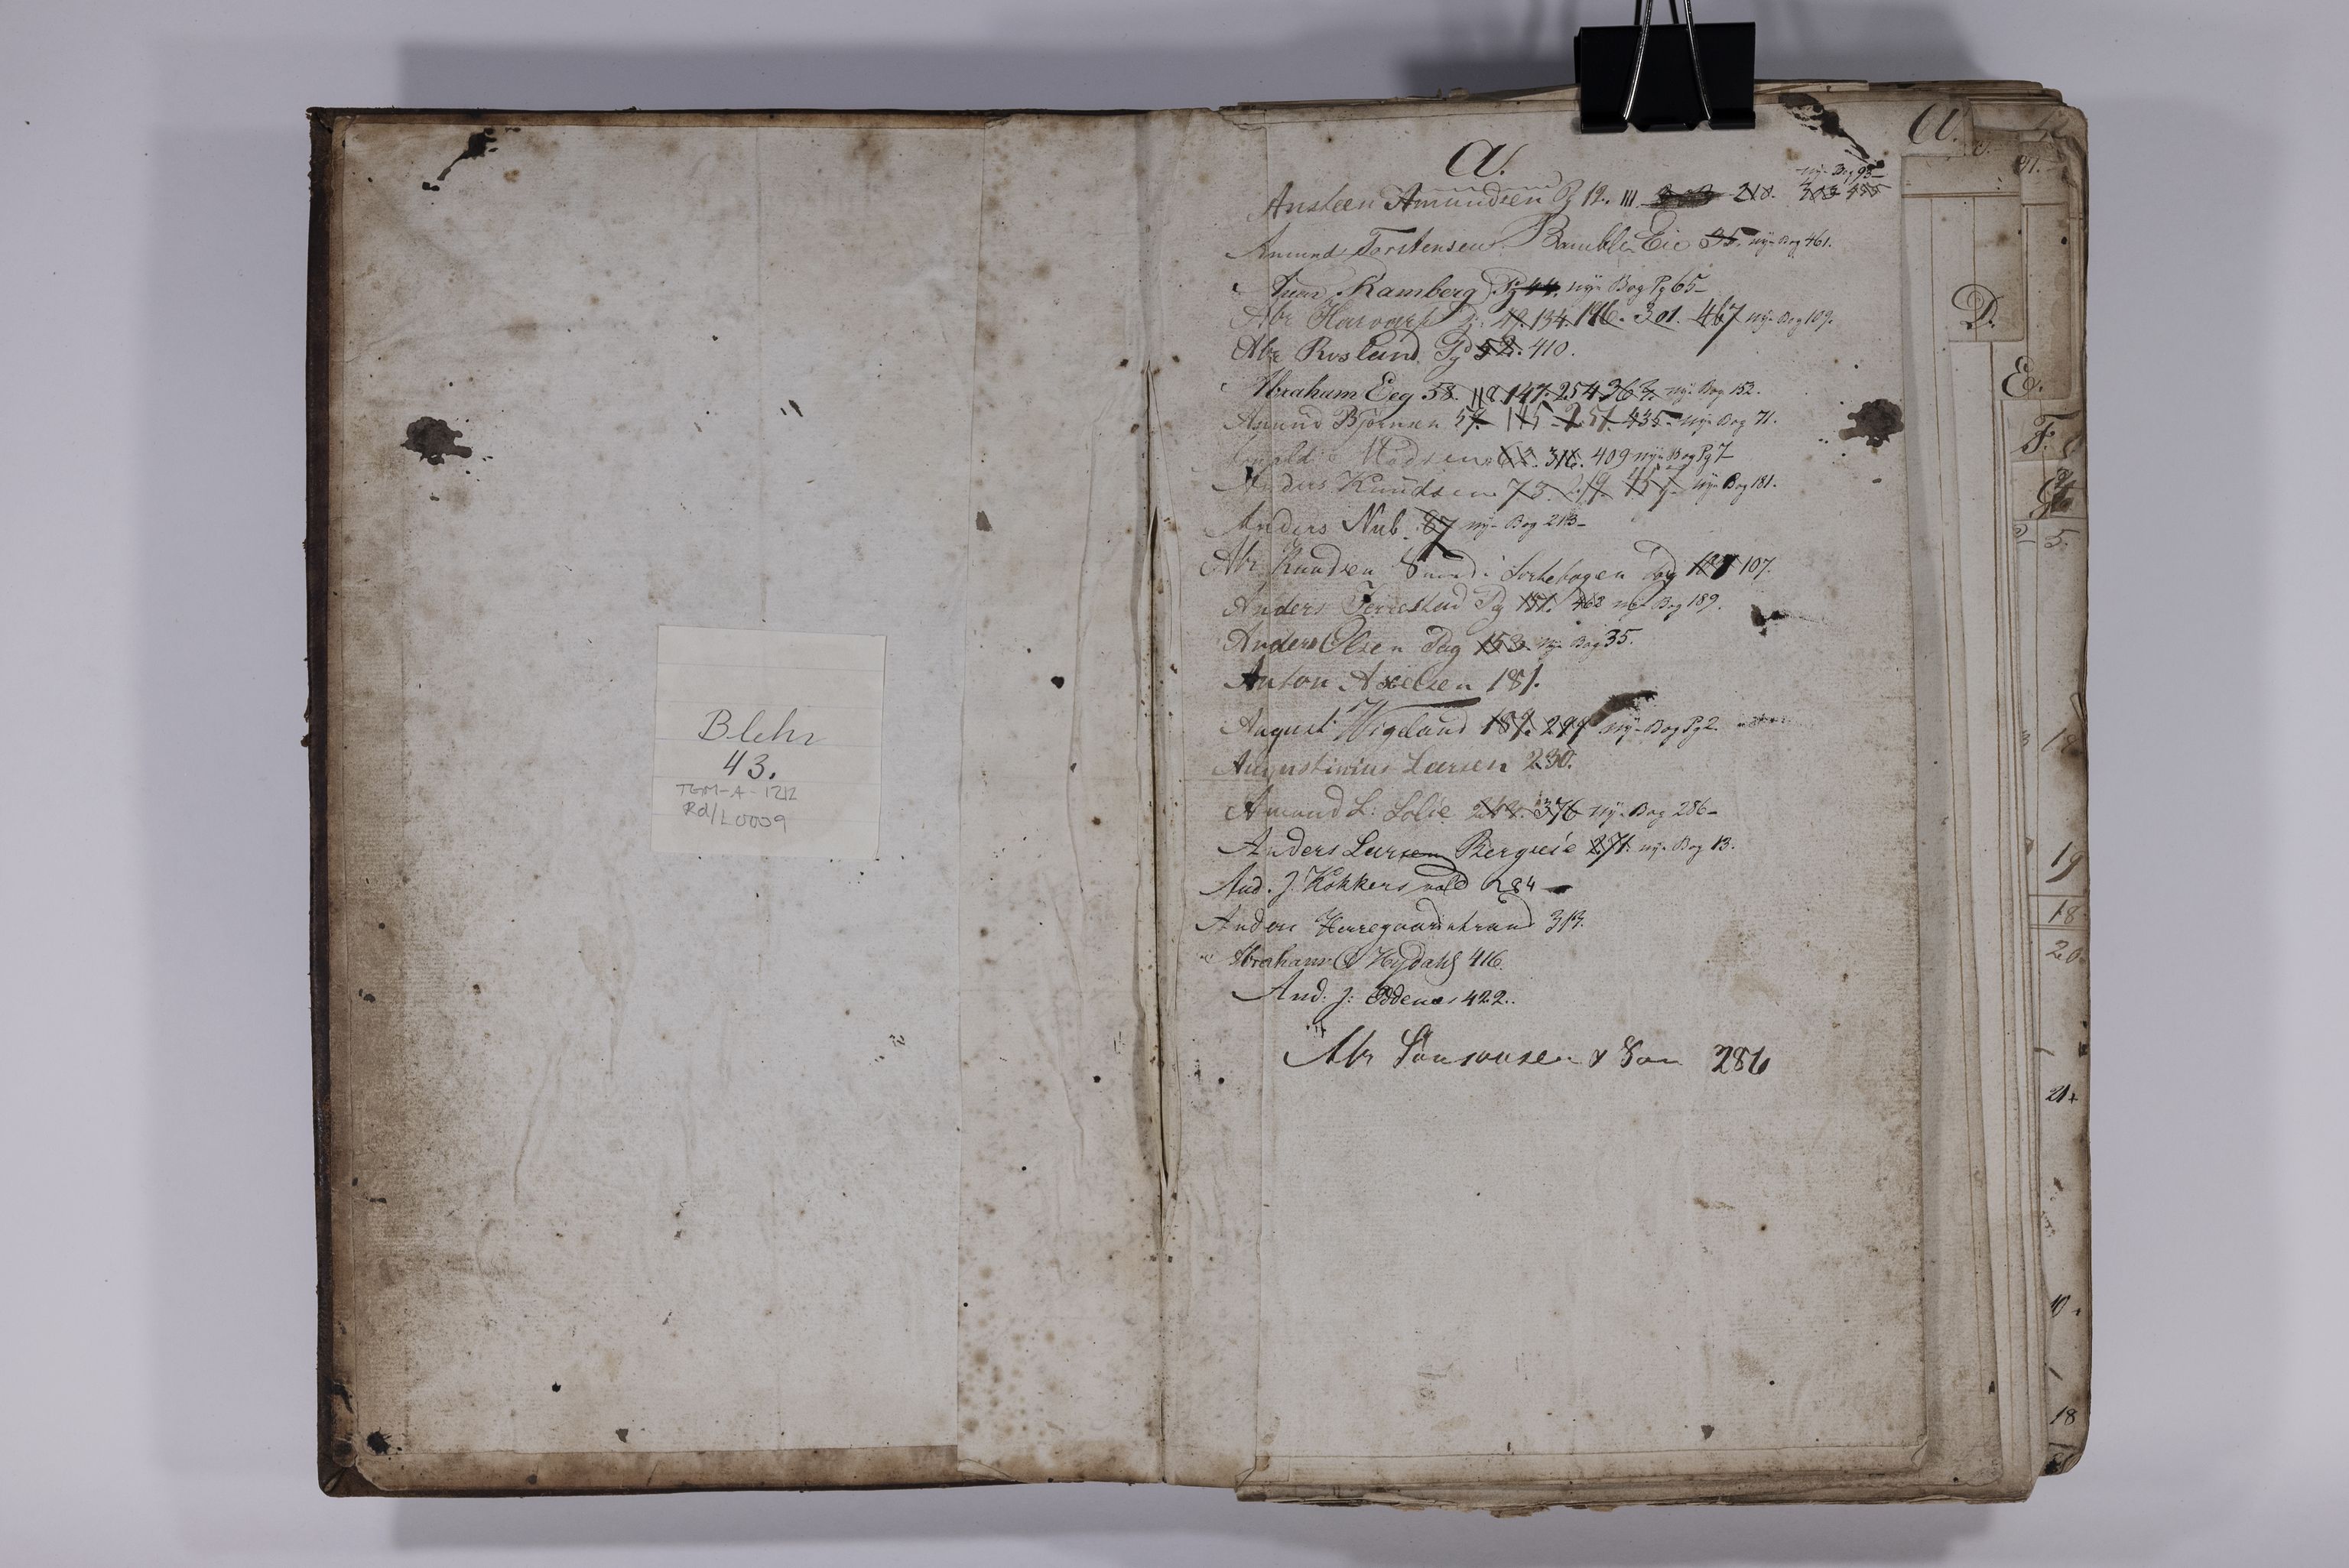 Blehr
43.
TGM-A-1212
Rd/L0009
A.
ny-Bog 95-
Ansteen Amundsen Pg 12. 111 218. 303 455
Amund Torstensen Bamble Eie 35. ny-Bog 461.
Ramberg Pg 44. ny-Bog Pg 65-
Abr 49. 134. 196. 301. 467 ny-Bog 109.
Abr Rosland Pg 52. 410.
Abraham Eeg 58. 118. 147. 254 363. ny-Bog 152.
Amund Bjørnsen 57. 145 - 251. 435- ny-Bog 71.
Madsen 62. 316. 409 ny-Bog Pg 7-
Anders Knudsen 73. 219. 457. ny-Bog 181.
Anders Nub. 87 ny-Bog 213-
Abr. Knudsen Smed i Lortehagen Pag 107.
Anders Ferrestad Pg 151. 468 ny-Bog 189.
Anders Olsen Pag 153. ny-Bog 35.
Anton Axelsen 181.
August Wigeland 189. 299 ny-Bog Pg 2.
Augustinius Larsen 230.
Amund L. Solie 242. 376 ny-Bog 286-
Anders Larsen Bergseie 271. ny-Bog 13.
And. J. Kokkersvold 284-
Anders Herregaardstrand 313.
Abraham Hydahl 416.
And: J: Oddenes 422.
Abr Tønsonsen & Søn 286
A.
D.
E.
F.
G.
5.
19
18
20
21+
10
18